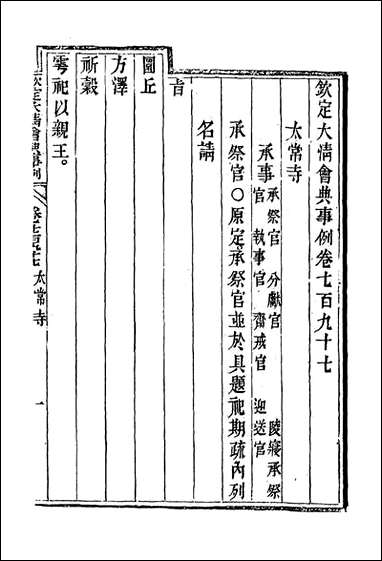 欽定大清會典事例卷七百九十七
太常寺
承事 承祭官 分獻官 陵寢承祭
官 執事官 齋戒官 迎送官
承祭官○原定承祭官並於具題祀期疏內列
名請
旨
圜丘
方澤
祈穀
雩祀以親王。
欽定大清會典事例
太常寺
一